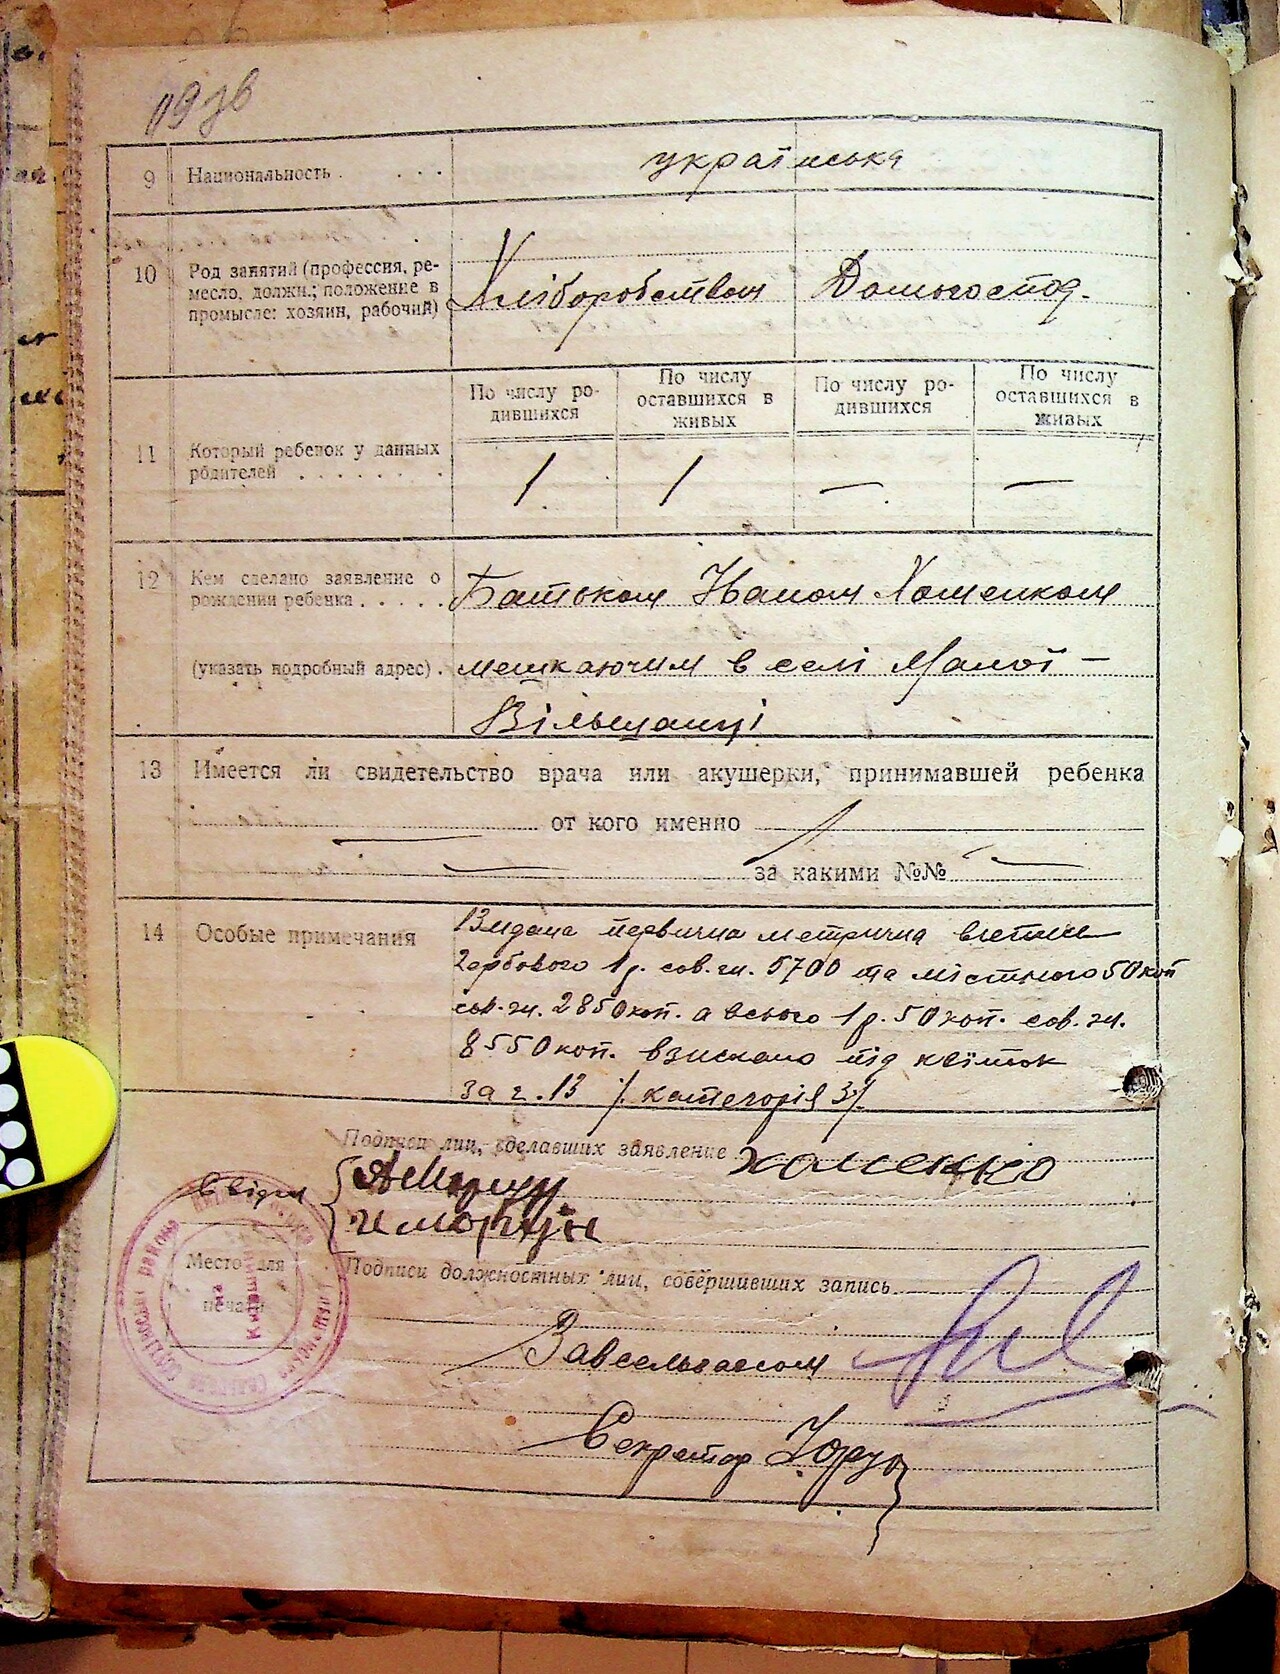 9 Национальность . . . . українська
10 Род занятий (профессия, ре-
месло, должн.; положение в
промысле: хозяин, рабочий)
Хліборобством Домогоспод.
По числу ро-
дившихся
По числу
оставшихся в
живых
По числу ро-
дившихся
По числу
оставшихся в
живых
11 Который ребенок у данных
родителей . . . . . . . .
1 1 — —
12 Кем сделано заявление о
рождении ребенка . . . . .
Батьком Іваном Хоменком
(указать подробный адрес) . мешкаючим в селі Малої —
Вільшанці
13 Имеется ли свидетельство врача или акушерки, принимавшей ребенка
— от кого именно
— за какими №№ —
14 Особые примечания
Видана первична метрична
Гербового 1 р. сов. зн. 5700 та містного 50 коп
сов. зн. 2850 коп. а всього 1 р. 50 коп. сов. зн.
8550 коп. взискано під квіток
за г. 13 /. категорія 3/.
Подписи лиц, сделавших заявление Хоменко
Место для
печати
Подписи должностных лиц, совершивших запись
Завсельзагсом
Секретар